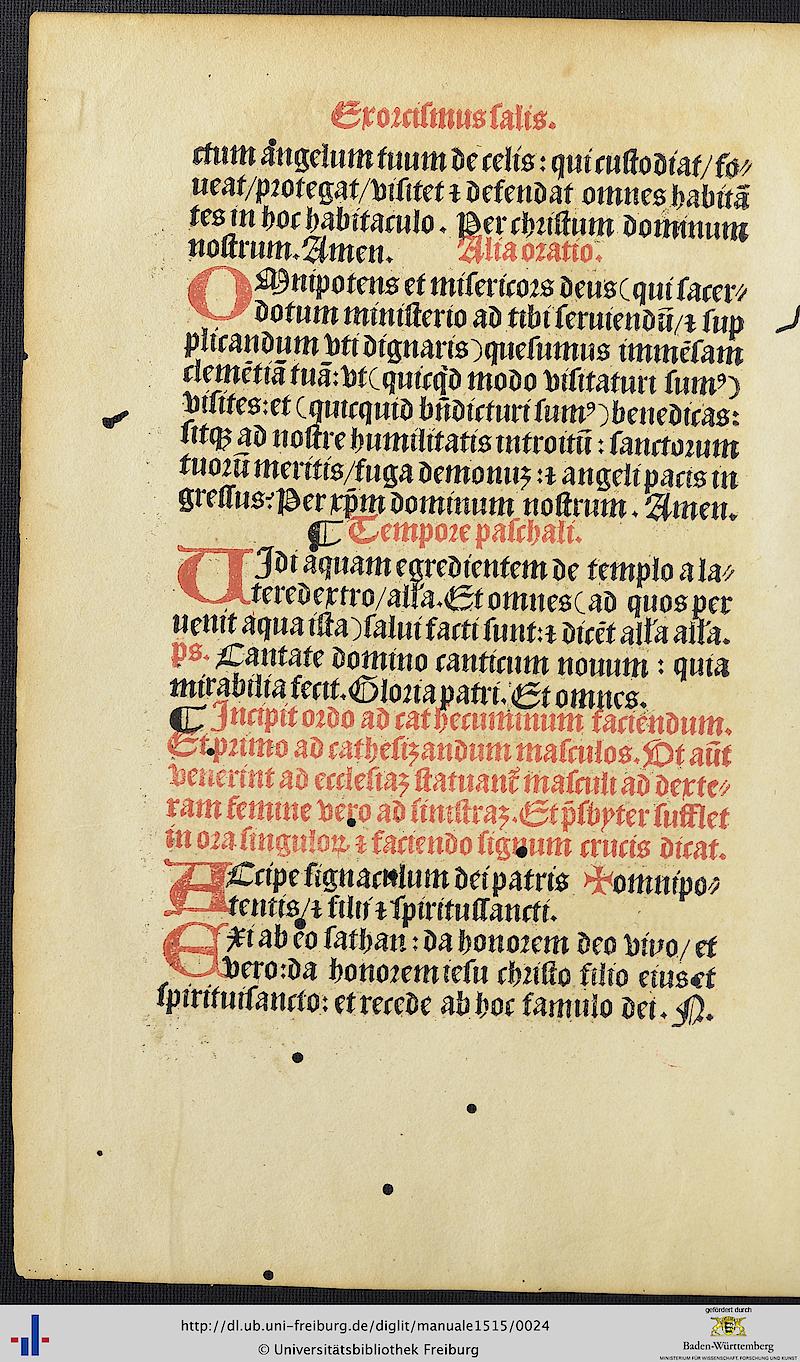 Exorcismus salis.
ctum angelum tuum de celis: qui custodiat/ fo⸗
ueat/protegat/visitet ⁊ defendat omnes habitā
tes in hoc habitaculo. Per christum dominum
nostrum. Amen. Alia oratio.
OMnipotens et misericors deus (qui sacer⸗
dotum ministerio ad tibi seruiendū/⁊ sup
plicandum vti dignaris) quesumus immēsam
clemētiā tuā: vt (quicq̇d modo visitaturi sumꝰ)
visites: et (quicquid bn̄dicturi sumꝰ) benedicas:
sitqꝫ ad nostre humilitatis introitū: sanctorum
tuorū meritis/fuga demonuꝫ: ⁊ angeli pacis in
gressus: Per xp̄m dominum nostrum. Amen.
¶ Tempore paschali.
UIdi aquam egredientem de templo a la⸗
tere dextro/ all'a. Et omnes (ad quos per
uenit aqua ista) salui facti sunt: ⁊ dicēt all'a all'a.
ps. Cantate domino canticum nouum: quia
mirabilia fecit. Gloria patri. Et omnes.
¶ Incipit ordo ad cathecuminum faciendum.
Et primo ad cathesizandum masculos. Ut aūt
venerint ad ecclesiaꝫ statuant᷑ masculi ad dexte⸗
ram femine vero ad sinistraꝫ. Et p̄sbyter sufflet
in ora singuloꝝ ⁊ faciendo signum crucis dicat.
ACcipe signaculum dei patris ✠ omnipo⸗
tentis/ ⁊ filij ⁊ spiritussancti.
EXi ab eo sathan: da honorem deo viuo/ et
vero: da honorem iesu christo filio eius et
spirituisancto: et recede ab hoc famulo dei. N.
http://dl.ub.uni-freiburg.de/diglit/manuale1515/0024
© Universitätsbibliothek Freiburg
gefördert durch
Baden-Württemberg
MINISTERIUM FÜR WISSENSCHAFT, FORSCHUNG UND KUNST